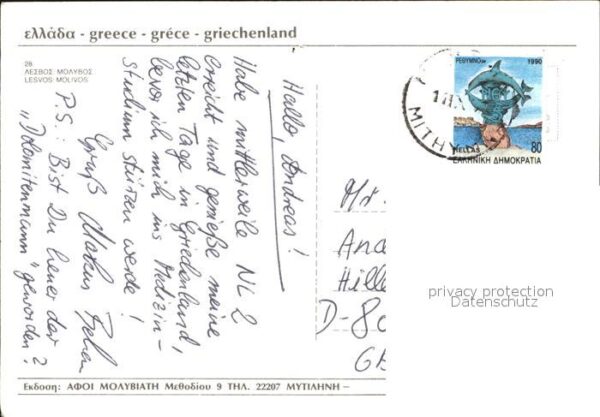 ελλάδα - greece - gréce - griechenland
28
ΛΕΣΒΟΣ ΜΟΛΥΒΟΣ
LESVOS MOLIVOS
Hallo, Andreas!
Habe mittlerweile NL 2
erreicht und genieße meine
letzten Tage in Griechenland,
bevor ich mich ins Medizin-
studium stürzen werde!
Gruß
P.S.: Bist Du heuer der
geworden?
ΡΕΘΥΜΝΟ
1990
80
HELLAS
ΕΛΛΗΝΙΚΗ ΔΗΜΟΚΡΑΤΙΑ
MITHY
Hr.
And
Hille
D-80
privacy protection
Datenschutz
Εκδοση: ΑΦΟΙ ΜΟΛΥΒΙΑΤΗ Μεθοδίου 9 ΤΗΛ. 22207 ΜΥΤΙΛΗΝΗ –